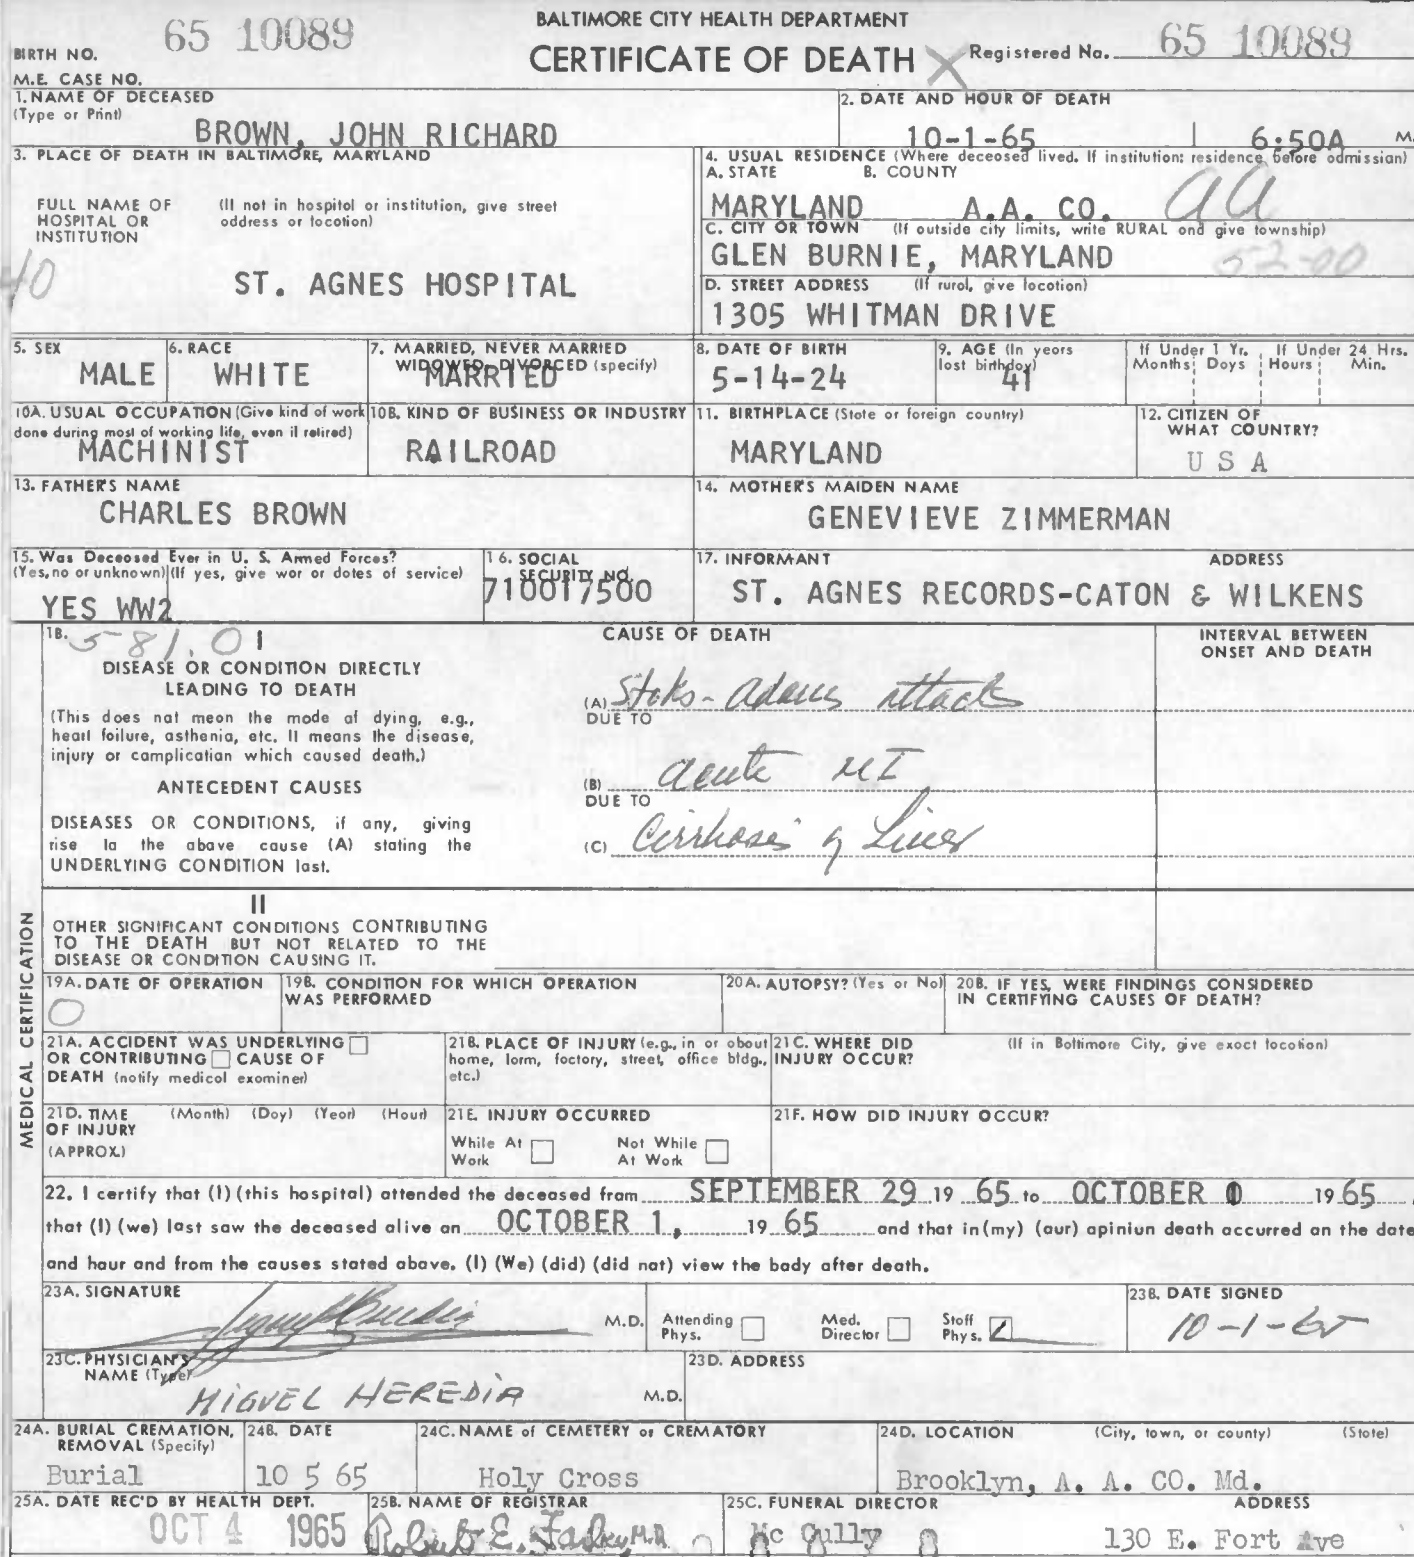 BALTIMORE CITY HEALTH DEPARTMENT
CERTIFICATE OF DEATH
BIRTH NO. 65 10089
Registered No. 65 10089
M.E. CASE NO.
1. NAME OF DECEASED (Type or Print)
BROWN, JOHN RICHARD
2. DATE AND HOUR OF DEATH
10-1-65 6:50A M.
3. PLACE OF DEATH IN BALTIMORE, MARYLAND
FULL NAME OF HOSPITAL OR INSTITUTION
(If not in hospital or institution, give street address or location)
40
ST. AGNES HOSPITAL
4. USUAL RESIDENCE (Where deceased lived. If institution: residence before admission)
A. STATE B. COUNTY
MARYLAND A.A. CO. AA
C. CITY OR TOWN (If outside city limits, write RURAL and give township)
GLEN BURNIE, MARYLAND 52-00
D. STREET ADDRESS (If rural, give location)
1305 WHITMAN DRIVE
5. SEX
MALE
6. RACE
WHITE
7. MARRIED, NEVER MARRIED WIDOWED, DIVORCED (specify)
MARRIED
8. DATE OF BIRTH
5-14-24
9. AGE (In years last birthday)
41
If Under 1 Yr. Months Days
If Under 24 Hrs. Hours Min.
10A. USUAL OCCUPATION (Give kind of work done during most of working life, even if retired)
MACHINIST
10B. KIND OF BUSINESS OR INDUSTRY
RAILROAD
11. BIRTHPLACE (State or foreign country)
MARYLAND
12. CITIZEN OF WHAT COUNTRY?
U S A
13. FATHER'S NAME
CHARLES BROWN
14. MOTHER'S MAIDEN NAME
GENEVIEVE ZIMMERMAN
15. Was Deceased Ever in U. S. Armed Forces?
(Yes, no or unknown) (If yes, give war or dates of service)
YES WW2
16. SOCIAL SECURITY NO.
710017500
17. INFORMANT ADDRESS
ST. AGNES RECORDS-CATON & WILKENS
MEDICAL CERTIFICATION
18. 581.0 I
CAUSE OF DEATH
INTERVAL BETWEEN ONSET AND DEATH
DISEASE OR CONDITION DIRECTLY LEADING TO DEATH
(This does not mean the mode of dying, e.g., heart failure, asthenia, etc. It means the disease, injury or complication which caused death.)
(A) Stoks-Adams attacks
DUE TO
ANTECEDENT CAUSES
(B) acute MI
DUE TO
DISEASES OR CONDITIONS, if any, giving rise to the above cause (A) stating the UNDERLYING CONDITION last.
(C) Cirrhosis of Liver
II
OTHER SIGNIFICANT CONDITIONS CONTRIBUTING TO THE DEATH BUT NOT RELATED TO THE DISEASE OR CONDITION CAUSING IT.
19A. DATE OF OPERATION
0
19B. CONDITION FOR WHICH OPERATION WAS PERFORMED
20A. AUTOPSY? (Yes or No)
20B. IF YES, WERE FINDINGS CONSIDERED IN CERTIFYING CAUSES OF DEATH?
21A. ACCIDENT WAS UNDERLYING OR CONTRIBUTING CAUSE OF DEATH (notify medical examiner)
21B. PLACE OF INJURY (e.g., in or about home, farm, factory, street, office bldg., etc.)
21C. WHERE DID INJURY OCCUR? (If in Baltimore City, give exact location)
21D. TIME OF INJURY (APPROX.) (Month) (Day) (Year) (Hour)
21E. INJURY OCCURRED
While At Work Not While At Work
21F. HOW DID INJURY OCCUR?
22. I certify that (I) (this hospital) attended the deceased from SEPTEMBER 29 19 65 to OCTOBER 1 19 65
that (I) (we) last saw the deceased alive on OCTOBER 1, 19 65 and that in (my) (our) opinion death occurred on the date
and hour and from the causes stated above. (I) (We) (did) (did not) view the body after death.
23A. SIGNATURE
M.D. Attending Phys. Med. Director Staff Phys.
23B. DATE SIGNED
10-1-65
23C. PHYSICIAN'S NAME (Type)
MIGUEL HEREDIA M.D.
23D. ADDRESS
24A. BURIAL CREMATION, REMOVAL (Specify)
Burial
24B. DATE
10 5 65
24C. NAME of CEMETERY or CREMATORY
Holy Cross
24D. LOCATION (City, town, or county) (State)
Brooklyn, A. A. CO. Md.
25A. DATE REC'D BY HEALTH DEPT.
OCT 4 1965
25B. NAME OF REGISTRAR
Robert E. Farber, M.D.
25C. FUNERAL DIRECTOR ADDRESS
Mc Cully 130 E. Fort Ave